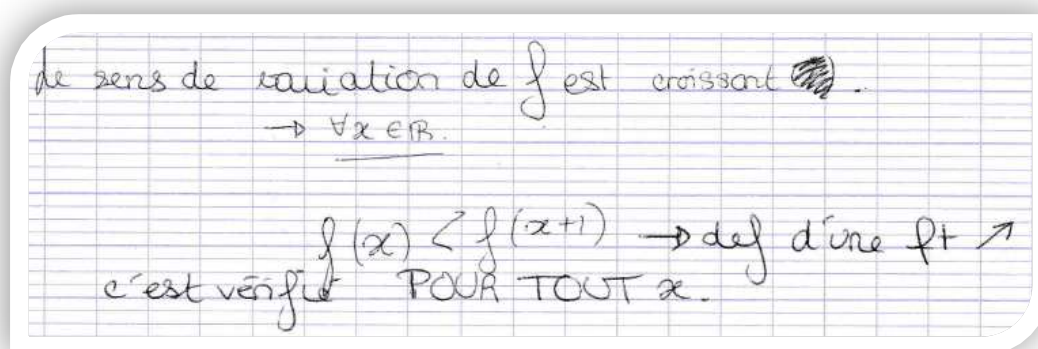 Le sens de variation de f est croissant.
→ ∀x ∈ ℝ.
f(x) < f(x+1) → def d'une ft ↗
c'est vérifié POUR TOUT x.